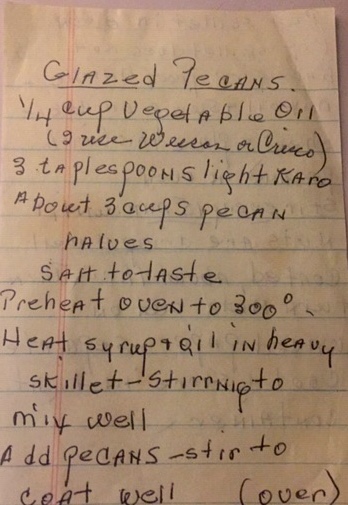 Glazed Pecans.
1/4 cup Vegetable Oil
(I use Wesson or Crisco)
3 taplespoons light Karo
About 3 cups pecan
halves
Salt to taste
Preheat oven to 300°.
Heat syrup & oil in heavy
skillet - stirrnig to
mix well
Add pecans - stir to
coat well (over)